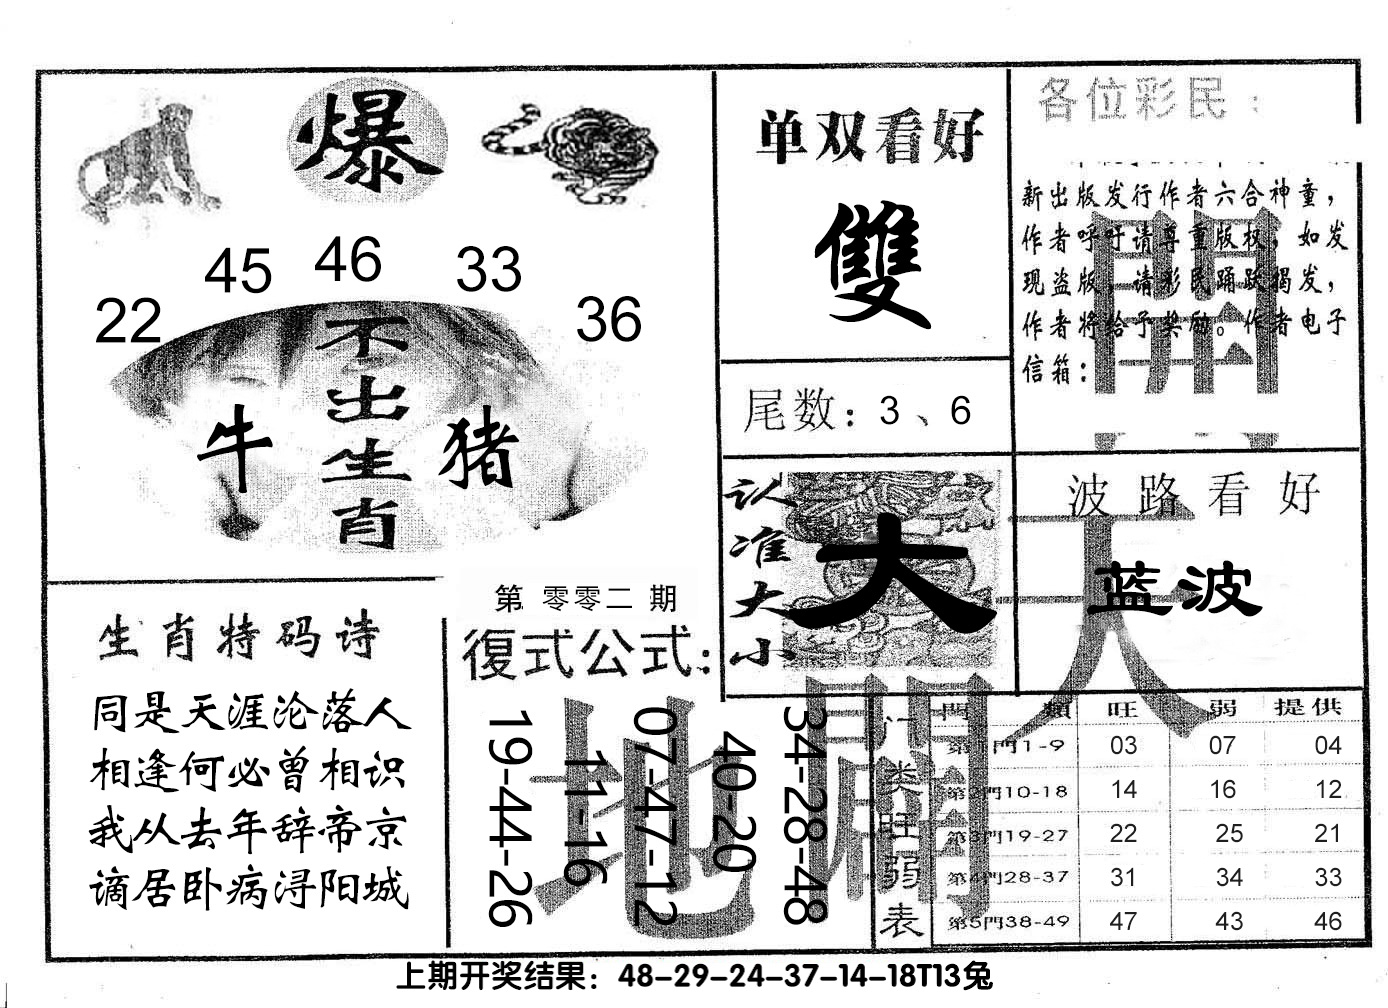 爆
22
45
46
33
36
不出生肖
牛
猪
单双看好
雙
尾数：3、6
认准大小
大
各位彩民：
新出版发行作者六合神童，
作者呼吁请尊重版权，如发
现盗版，请彩民踊跃揭发，
作者将给予奖励。作者电子
信箱：
波路看好
蓝波
天
開
地
開
生肖特码诗
同是天涯沦落人
相逢何必曾相识
我从去年辞帝京
谪居卧病浔阳城
第 零零二 期
復式公式：
19-44-26
11-16
07-47-12
40-20
34-28-48
门类旺弱表
門 類 旺 弱 提供
第1門1-9 03 07 04
第2門10-18 14 16 12
第3門19-27 22 25 21
第4門28-37 31 34 33
第5門38-49 47 43 46
上期开奖结果：48-29-24-37-14-18T13兔